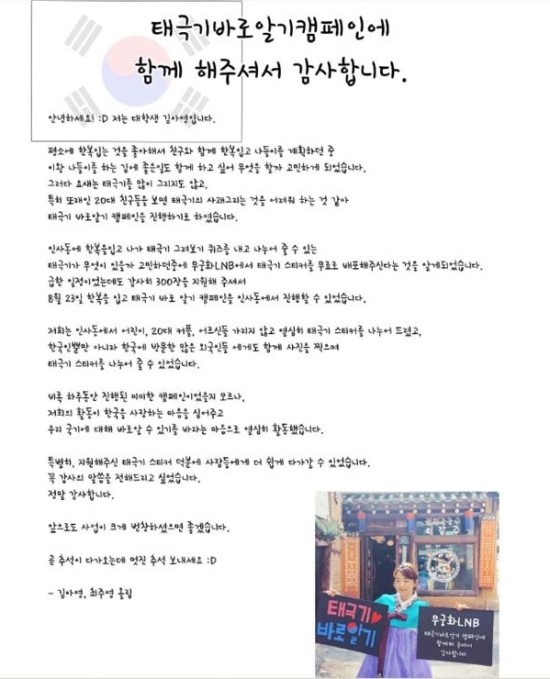 태극기바로알기캠페인에
함께 해주셔서 감사합니다.
안녕하세요! :D 저는 대학생 김아영입니다.
평소에 한복입는 것을 좋아해서 친구와 함께 한복입고 나들이를 계획하던 중
이왕 나들이를 하는 김에 좋은일도 함께 하고 싶어 무엇을 할까 고민하게 되었습니다.
그러다 요새는 태극기를 많이 그리지도 않고,
특히 또래인 20대 친구들을 보면 태극기의 사괘그리는 것을 어려워 하는 것 같아
태극기 바로알기 캠페인을 진행하기로 하였습니다.
인사동에 한복을입고 나가 태극기 그려보기 퀴즈를 내고 나누어 줄 수 있는
태극기가 무엇이 있을까 고민하던중에 무궁화LNB에서 태극기 스티커를 무료로 배포해주신다는 것을 알게되었습니다.
급한 일정이었는데도 감사히 300장을 지원해 주셔서
8월 23일 한복을 입고 태극기 바로 알기 캠페인을 인사동에서 진행할 수 있었습니다.
저희는 인사동에서 어린이, 20대 커플, 어르신등 가리지 않고 열심히 태극기 스티커를 나누어 드렸고,
한국인뿐만 아니라 한국에 방문한 많은 외국인들 에게도 함께 사진을 찍으며
태극기 스티커를 나누어 줄 수 있었습니다.
비록 하루동안 진행된 미미한 캠페인이었을지 모르나,
저희의 활동이 한국을 사랑하는 마음을 심어주고
우리 국기에 대해 바로알 수 있기를 바라는 마음으로 열심히 활동했습니다.
특별히, 지원해주신 태극기 스티커 덕분에 사람들에게 더 쉽게 다가갈 수 있었습니다.
꼭 감사의 말씀을 전해드리고 싶었습니다.
정말 감사합니다.
앞으로도 사업이 크게 번창하셨으면 좋겠습니다.
곧 추석이 다가오는데 멋진 추석 보내세요 :D
- 김아영, 최주영 올림
태극기♥
바로알기
무궁화LNB
태극기바로알기 캠페인에
함께해 주셔서
감사합니다